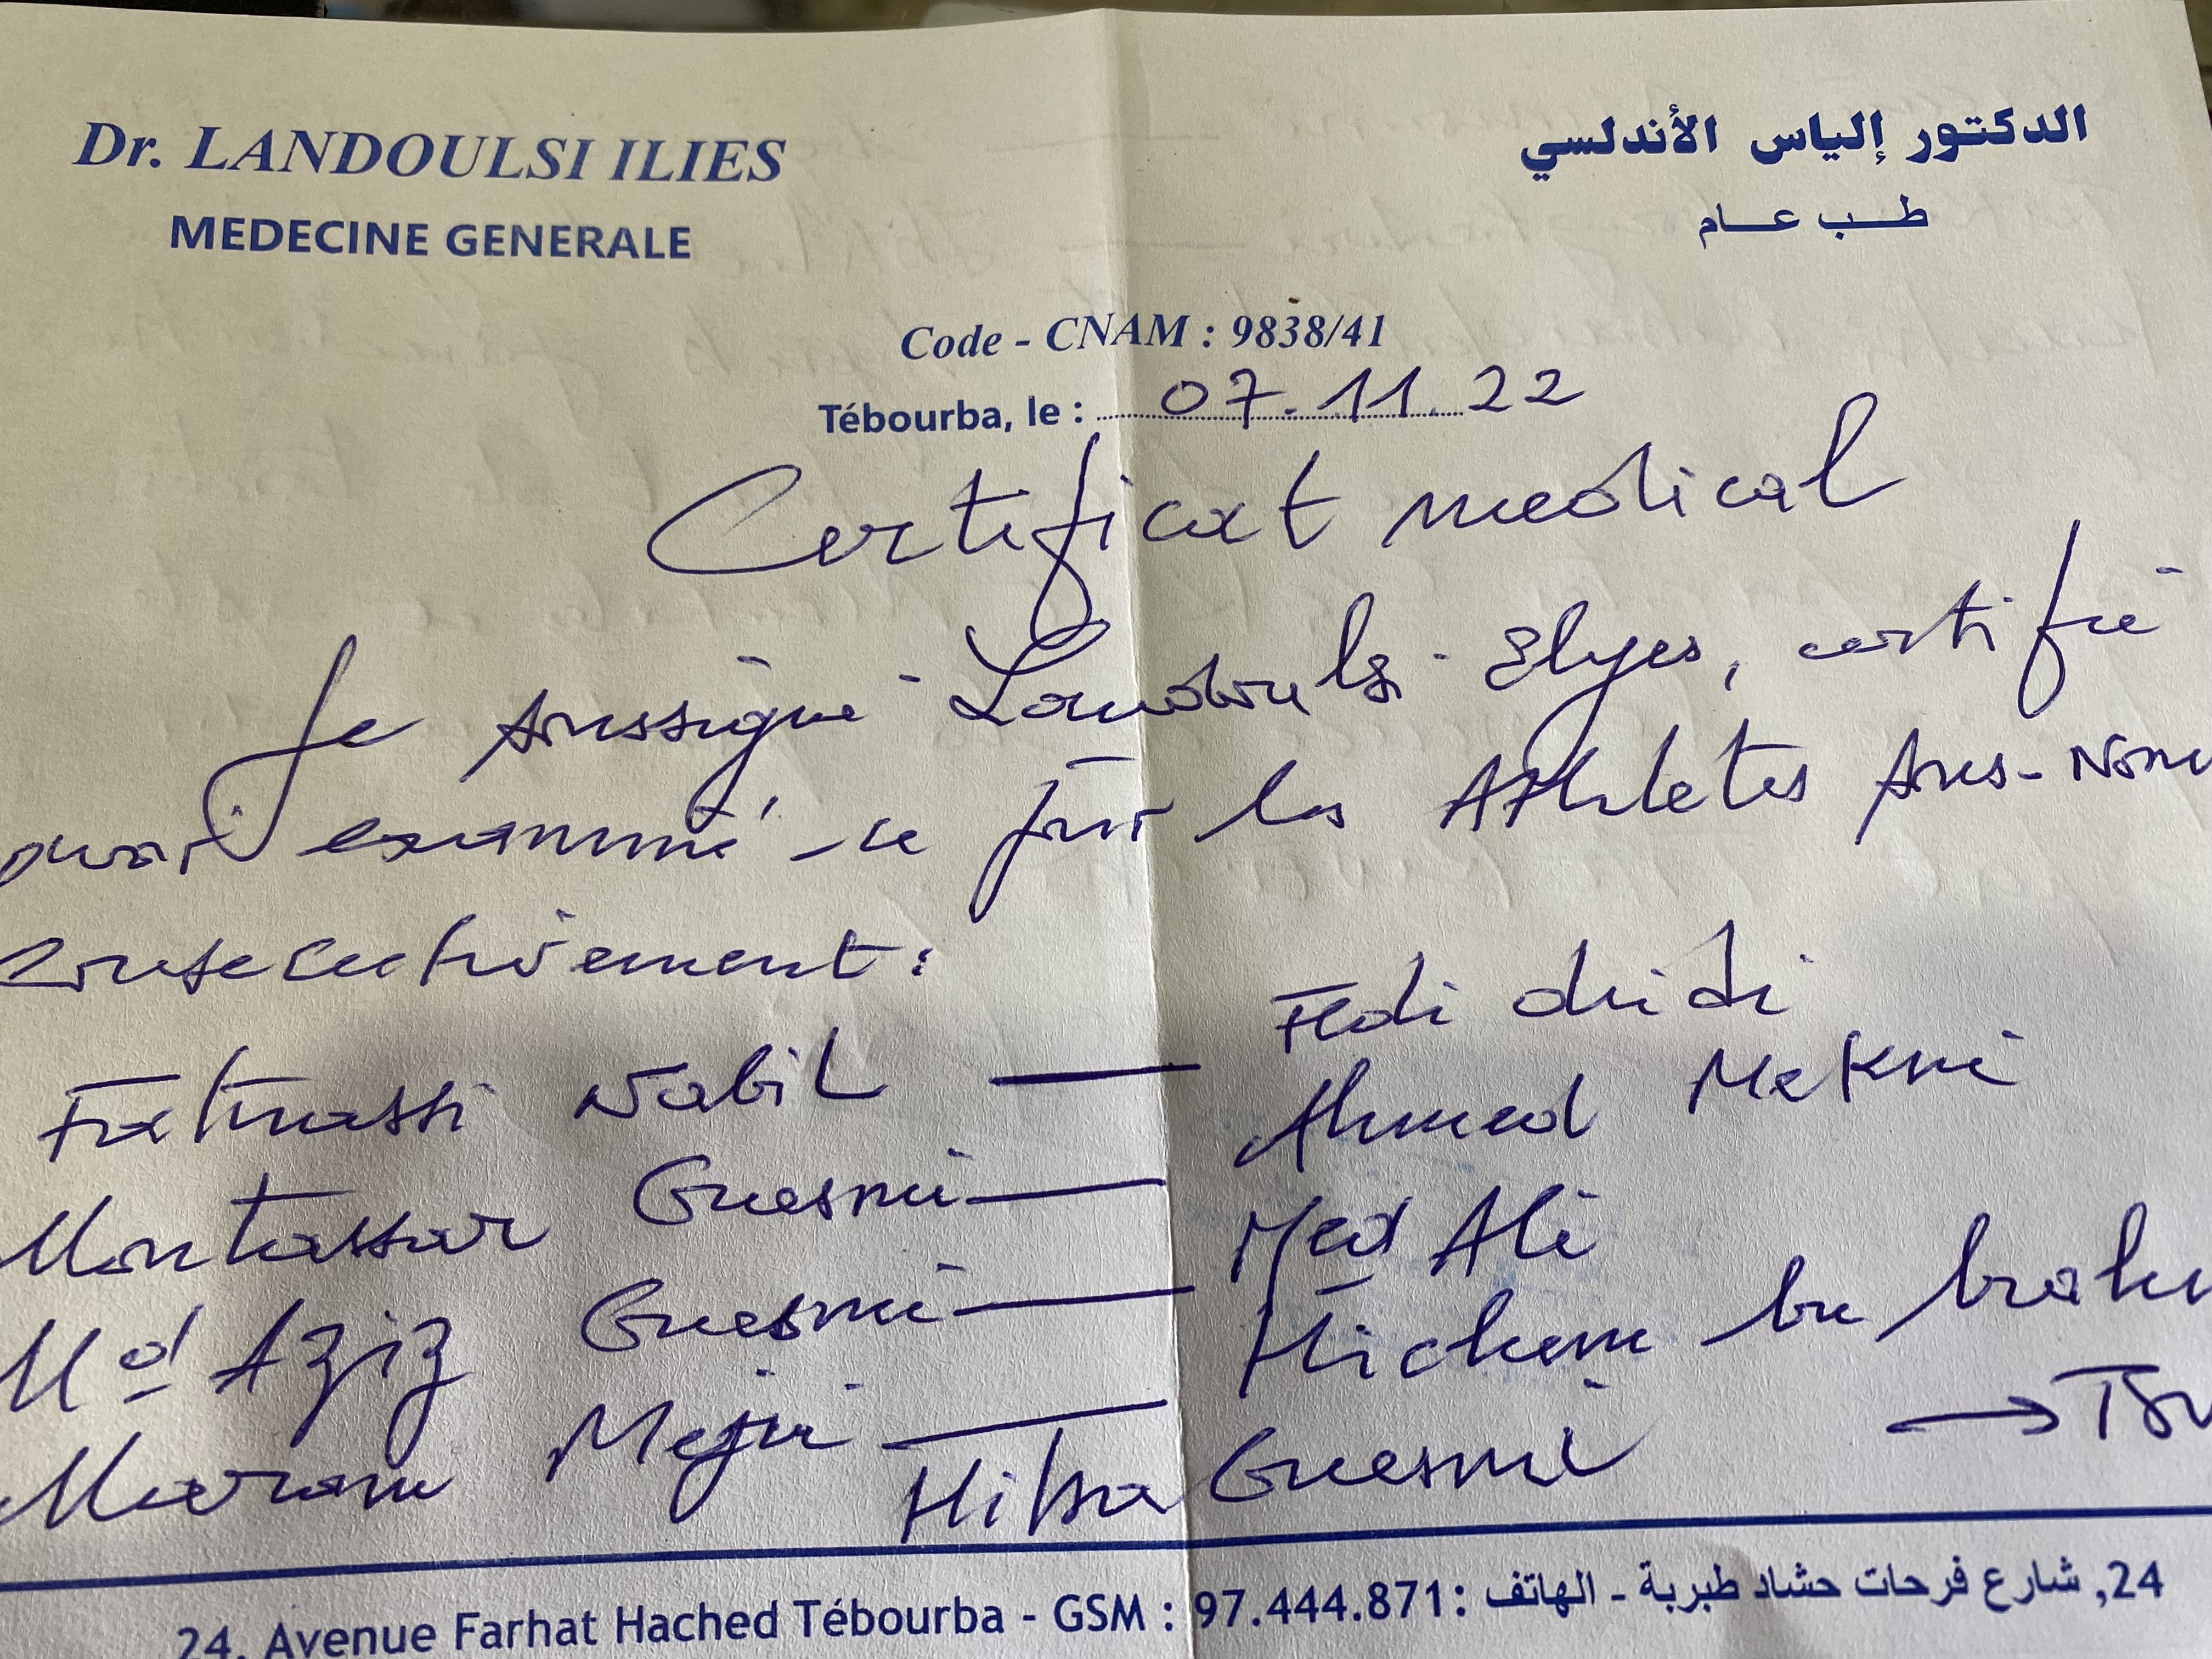 Dr. LANDOULSI ILIES
MEDECINE GENERALE
الدكتور إلياس الأندلسي
طب عام
Code - CNAM : 9838/41
Tébourba, le : 07.11.22
Certificat medical
Je soussigné Landoulsi Elyes, certifie
avoir examiné ce jour les Athletes sus-Nom
consecutivement :
Fatnassi Nabil — Fedi dridi
Montassar Guesmi — Ahmed Mekni
Md Aziz Guesmi — Med Ali
Maram Mejri — Hichem ben brahi
Guesmi →
24, Avenue Farhat Hached Tébourba - GSM : 97.444.871 : الهاتف - 24, شارع فرحات حشاد طبربة